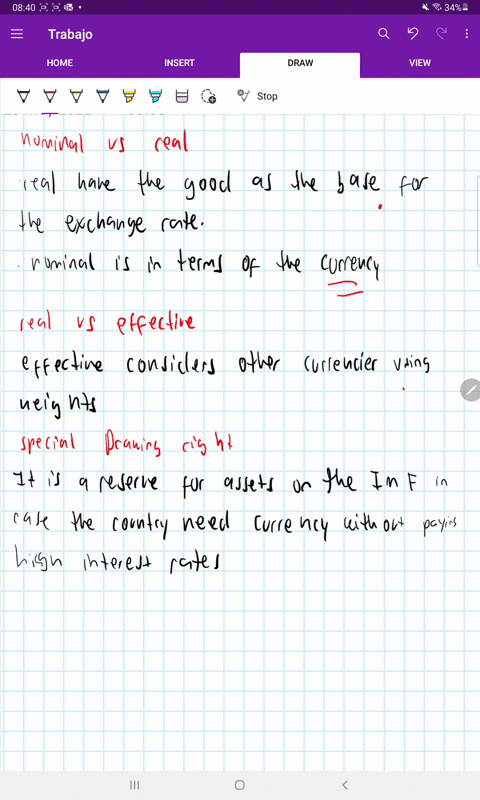 08:40 34%
Trabajo
HOME INSERT DRAW VIEW
Stop
nominal vs real
real have the good as the base for
the exchange rate.
. nominal is in terms of the currency
real vs effective
effective considers other currencier using
weights
special Drawing right
It is a reserve for assets on the IMF in
case the country need currency without paying
high interest rates